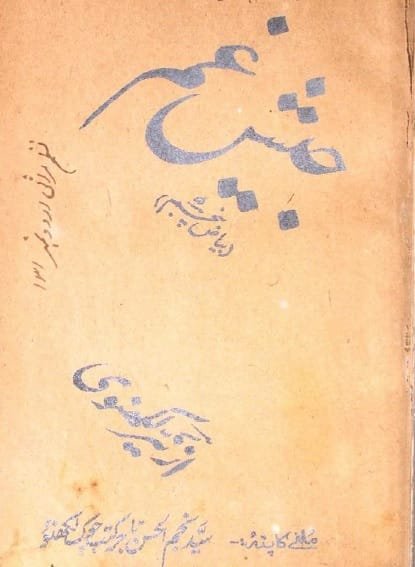 جیش غم
(بیاض پنجم)
نظم مراثی اردو نمبر ۱۳۱
از خبیر لکھنوی
ملنے کا پتہ:- سید نجم الحسن تاجر کتب چوک لکھنؤ